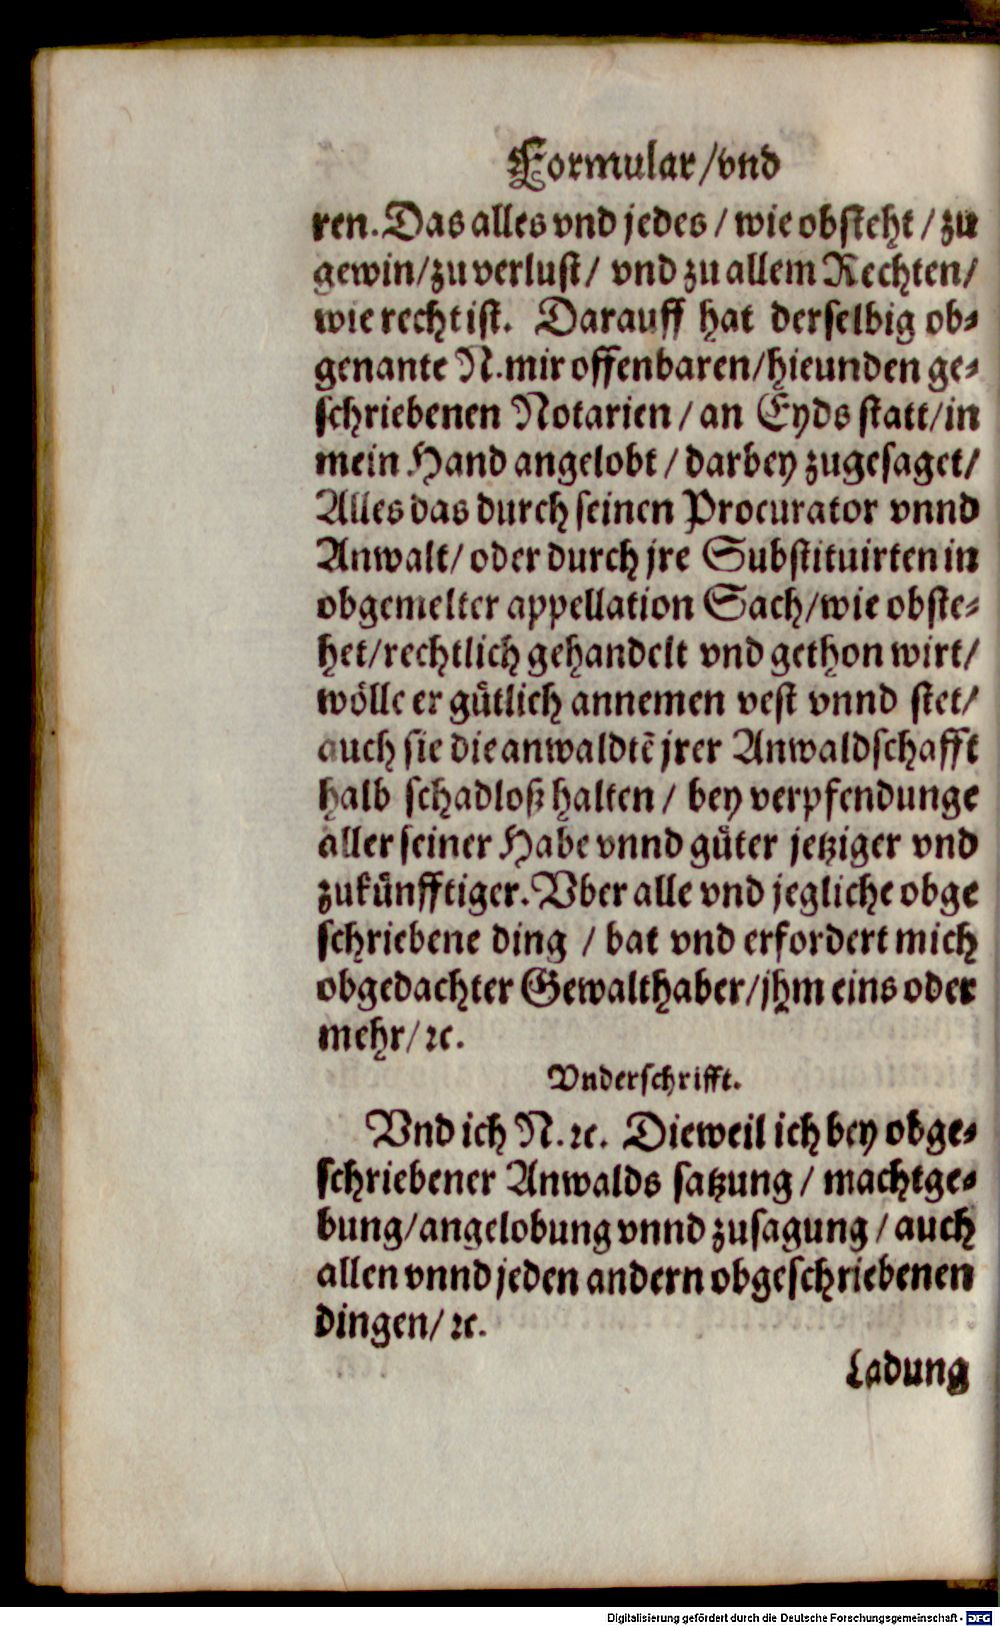 Formular/vnd
ren. Das alles vnd jedes / wie obsteht / zu
gewin/zu verlust/ vnd zu allem Rechten/
wie recht ist. Darauff hat derselbig ob-
genante N. mir offenbaren/hieunden ge-
schriebenen Notarien / an Eyds statt/in
mein Hand angelobt / darbey zugesaget/
Alles das durch seinen Procurator vnnd
Anwalt/ oder durch jre Substituirten in
obgemelter appellation Sach/wie obste-
het/rechtlich gehandelt vnd gethon wirt/
wölle er guͤtlich annemen vest vnnd stet/
auch sie die anwaldtē jrer Anwaldschafft
halb schadloß halten / bey verpfendunge
aller seiner Habe vnnd guͤter jetziger vnd
zukuͤnfftiger. Vber alle vnd jegliche obge
schriebene ding / bat vnd erfordert mich
obgedachter Gewalthaber/jhm eins oder
mehr/ ꝛc.
Vnderschrifft.
Vnd ich N. ꝛc. Dieweil ich bey obge-
schriebener Anwalds satzung / machtge-
bung/angelobung vnnd zusagung / auch
allen vnnd jeden andern obgeschriebenen
dingen/ ꝛc.
Ladung
Digitalisierung gefördert durch die Deutsche Forschungsgemeinschaft - DFG